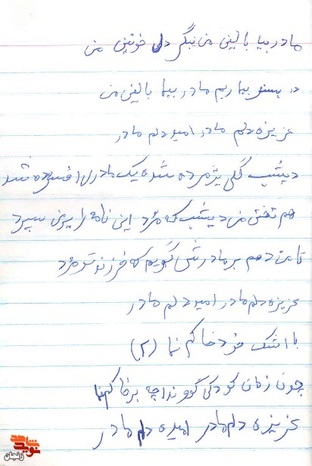 مادر بیا بالین من بنگر دل خونین من
در بستر بیماریم مادر بیا بالین من
عزیزه دلم مادر امید دلم مادر
دیشب گلی پژمرده شده یک مادری افسرده شد
هم تخت من دیشب که مرد این نامه را بمن سپرد
تا من دهم بر مادرش گویم که فرزند تو مرد
عزیزه دلم مادر امید دلم مادر
با اشک خود خاکم نما (۲)
چون زمان کودکی گهواره
عزیزه دلم مادر امیده دلم مادر